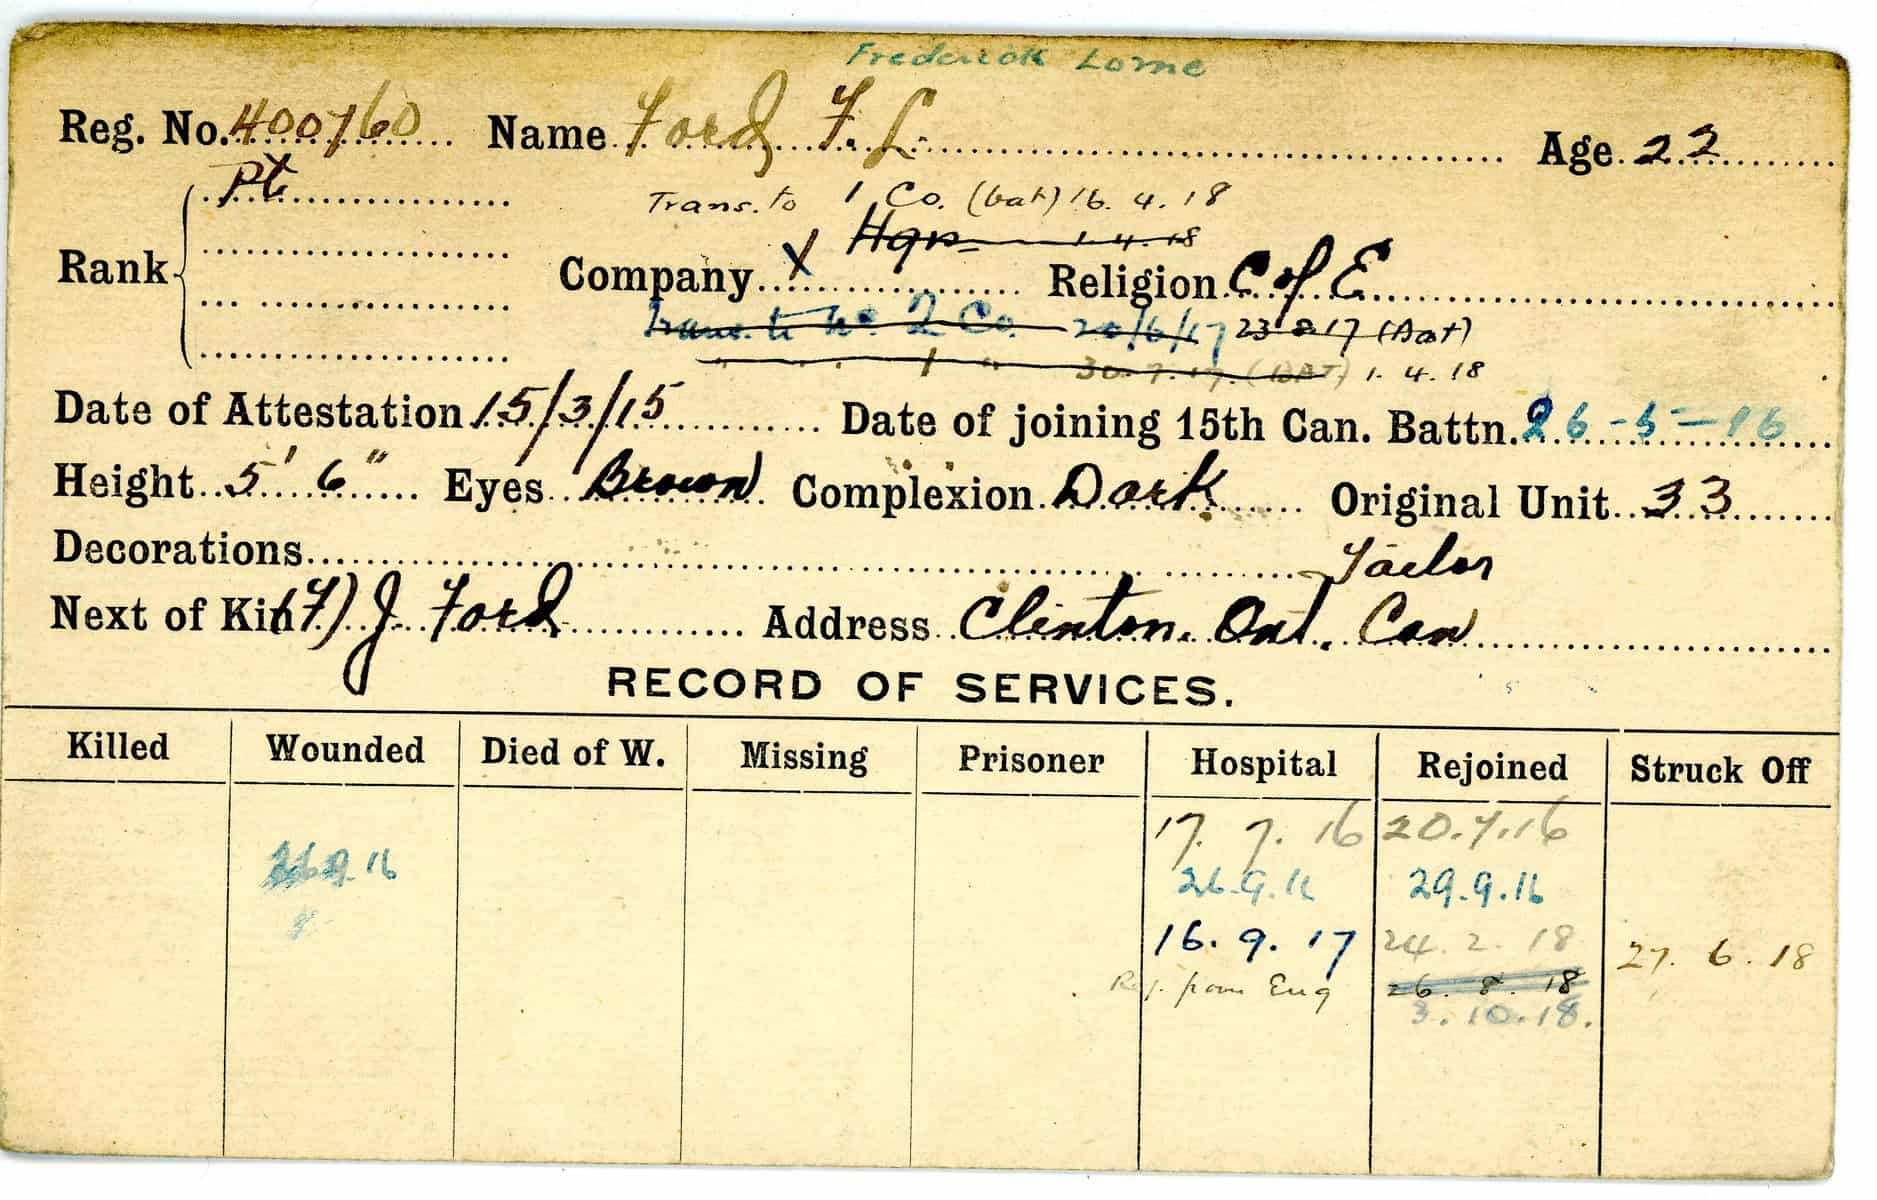 Frederick Lorne
Reg. No. 400760 Name Ford F. L. Age 22
Pte
Trans. to 1 Co. (bat) 16. 4. 18
Hqrs 1.4.18
Rank Company 1 Religion C of E
Trans. to No. 2 Co. 20/6/17 23 8 17 (Bat)
" " 1 " 30.7.17. (BAT) 1. 4. 18
Date of Attestation 15/3/15 Date of joining 15th Can. Battn. 26-5-16
Height 5' 6" Eyes Brown Complexion Dark Original Unit 33
Decorations Tailor
Next of Kin (F) J. Ford Address Clinton. Ont. Can
RECORD OF SERVICES.
Killed Wounded Died of W. Missing Prisoner Hospital Rejoined Struck Off
17. 7. 16 20.7.16
26.9.16 26.9.16 29.9.16
16. 9. 17 24. 2. 18 27. 6. 18
Rej. from Eng 26. 8. 18
3. 10. 18.